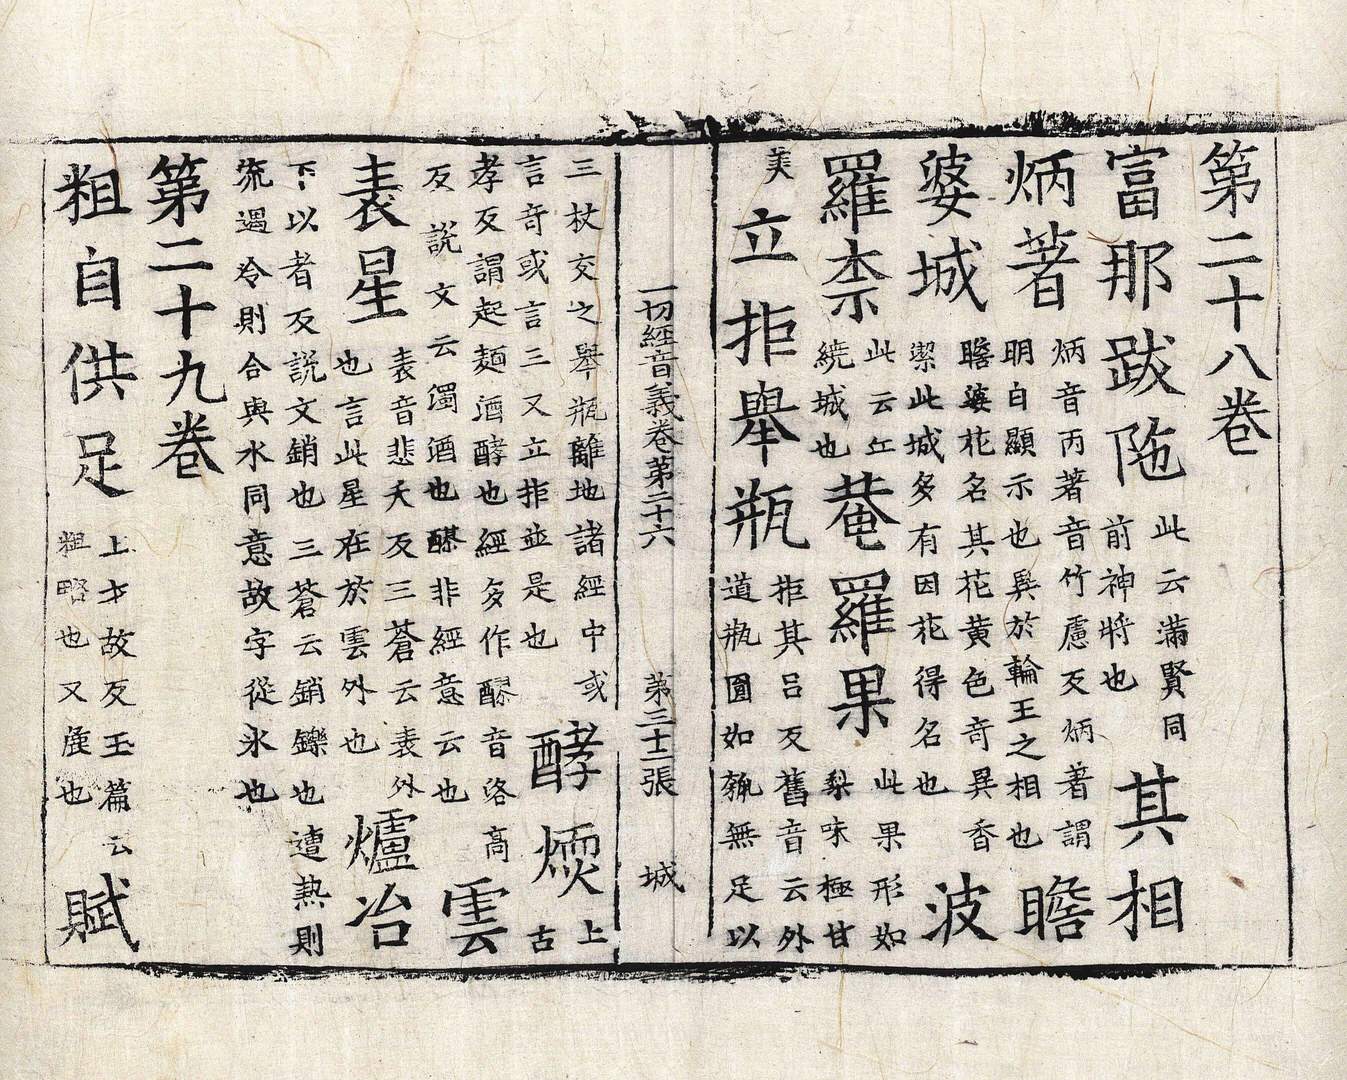 第二十八卷
富那跋陁
此云滿賢同
前神將也
其相
炳著
炳音丙著音竹慮反炳著謂
明白顯示也與於輪王之相也
瞻
婆城
瞻婆花名其花黄色竒異香
潔此城多有因花得名也
波
羅柰
此云江
繞城也
菴羅果
此果形如
梨味極甘
美
立拒舉瓶
拒其吕反舊音云外
道瓶圓如瓠無足以
一切經音義卷第二十六 第三十二張 城
三杖交之舉瓶離地諸經中或
言竒或言三叉立拒並是也
酵煗
上
古
孝反謂起麵酒酵也經多作醪音洛高
反說文云濁酒也醪非經意云也
雲
表星
表音悲夭反三蒼云表外
也言此星在於雲外也
爐冶
下以者反說文銷也三蒼云銷鑠也遭熱則
流遇冷則合與水同意故字從氷也
第二十九卷
粗自供足
上才故反玉篇云
粗略也又麁也
賦